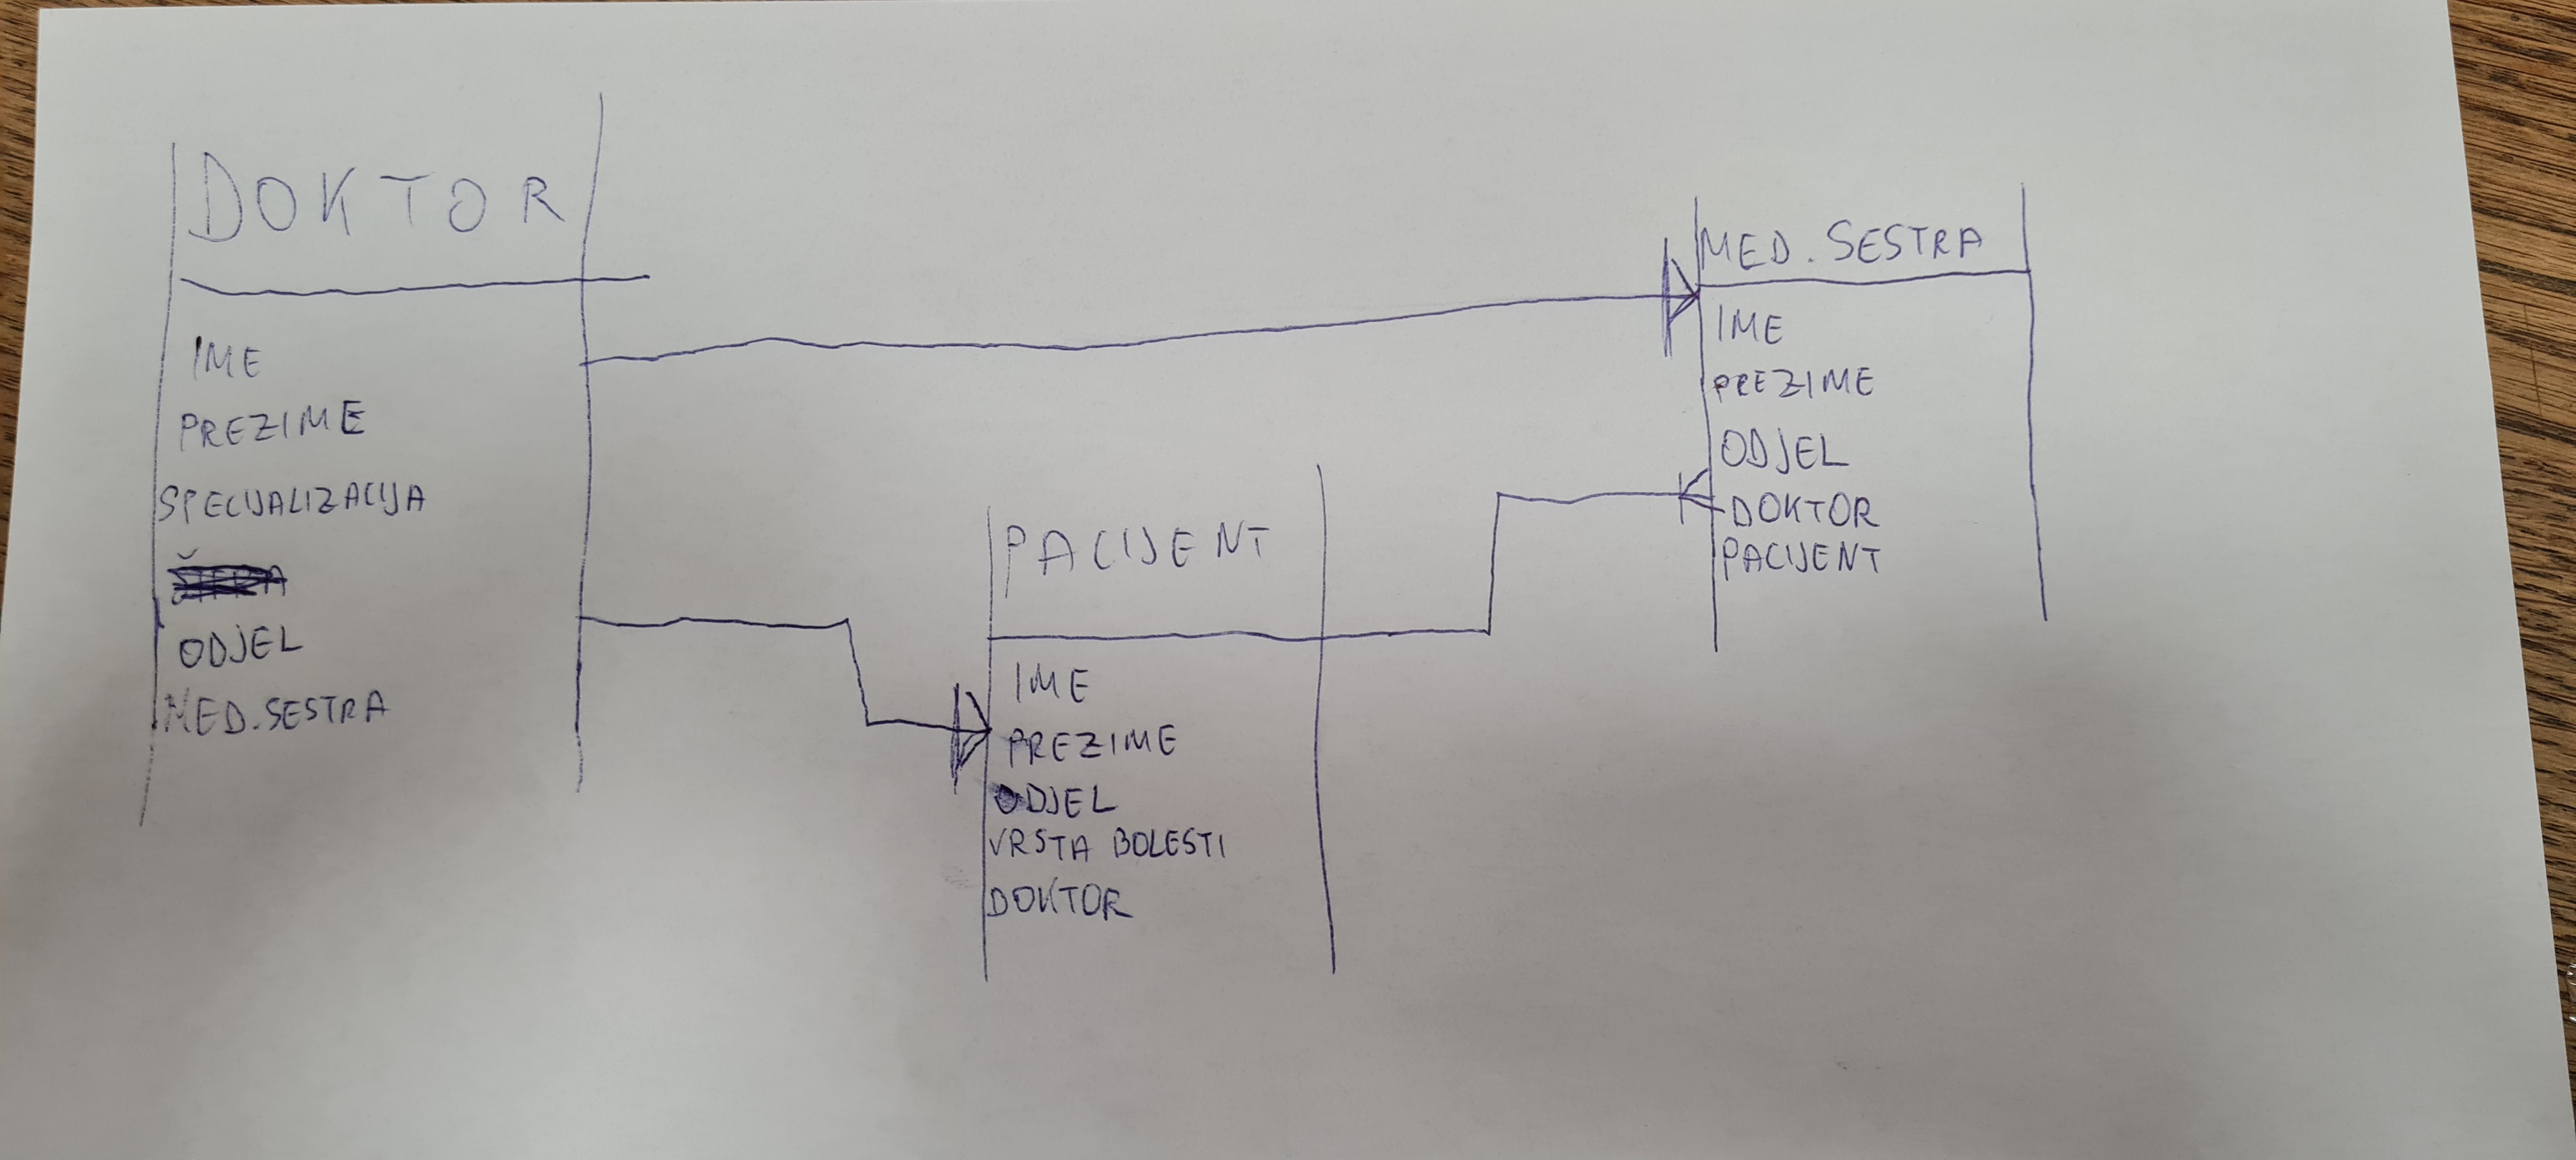 DOKTOR
IME
PREZIME
SPECIJALIZACIJA
ODJEL
MED. SESTRA
PACIJENT
IME
PREZIME
ODJEL
VRSTA BOLESTI
DOKTOR
MED. SESTRA
IME
PREZIME
ODJEL
DOKTOR
PACIJENT